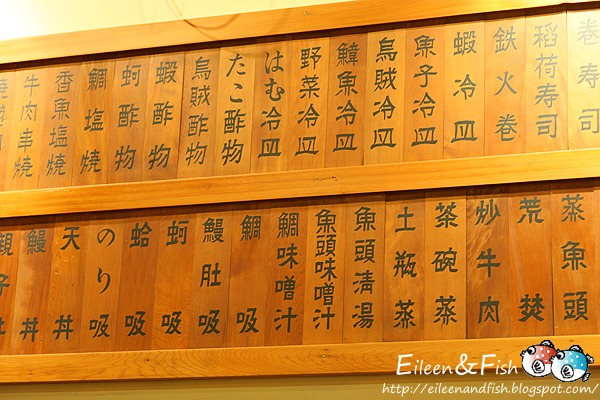 巻寿司
稲荷寿司
鉄火巻
蝦冷皿
魚子冷皿
烏賊冷皿
鱆魚冷皿
野菜冷皿
はむ冷皿
たこ酢物
烏賊酢物
蝦酢物
蚵酢物
鯛塩焼
香魚塩焼
牛肉串焼
蒸魚頭
荒焚
炒牛肉
茶碗蒸
土瓶蒸
魚頭清湯
魚頭味噌汁
鯛味噌汁
鯛吸
鰻肚吸
蚵吸
蛤吸
のり吸
天丼
鰻丼
親子丼
Eileen&Fish
http://eileenandfish.blogspot.com/